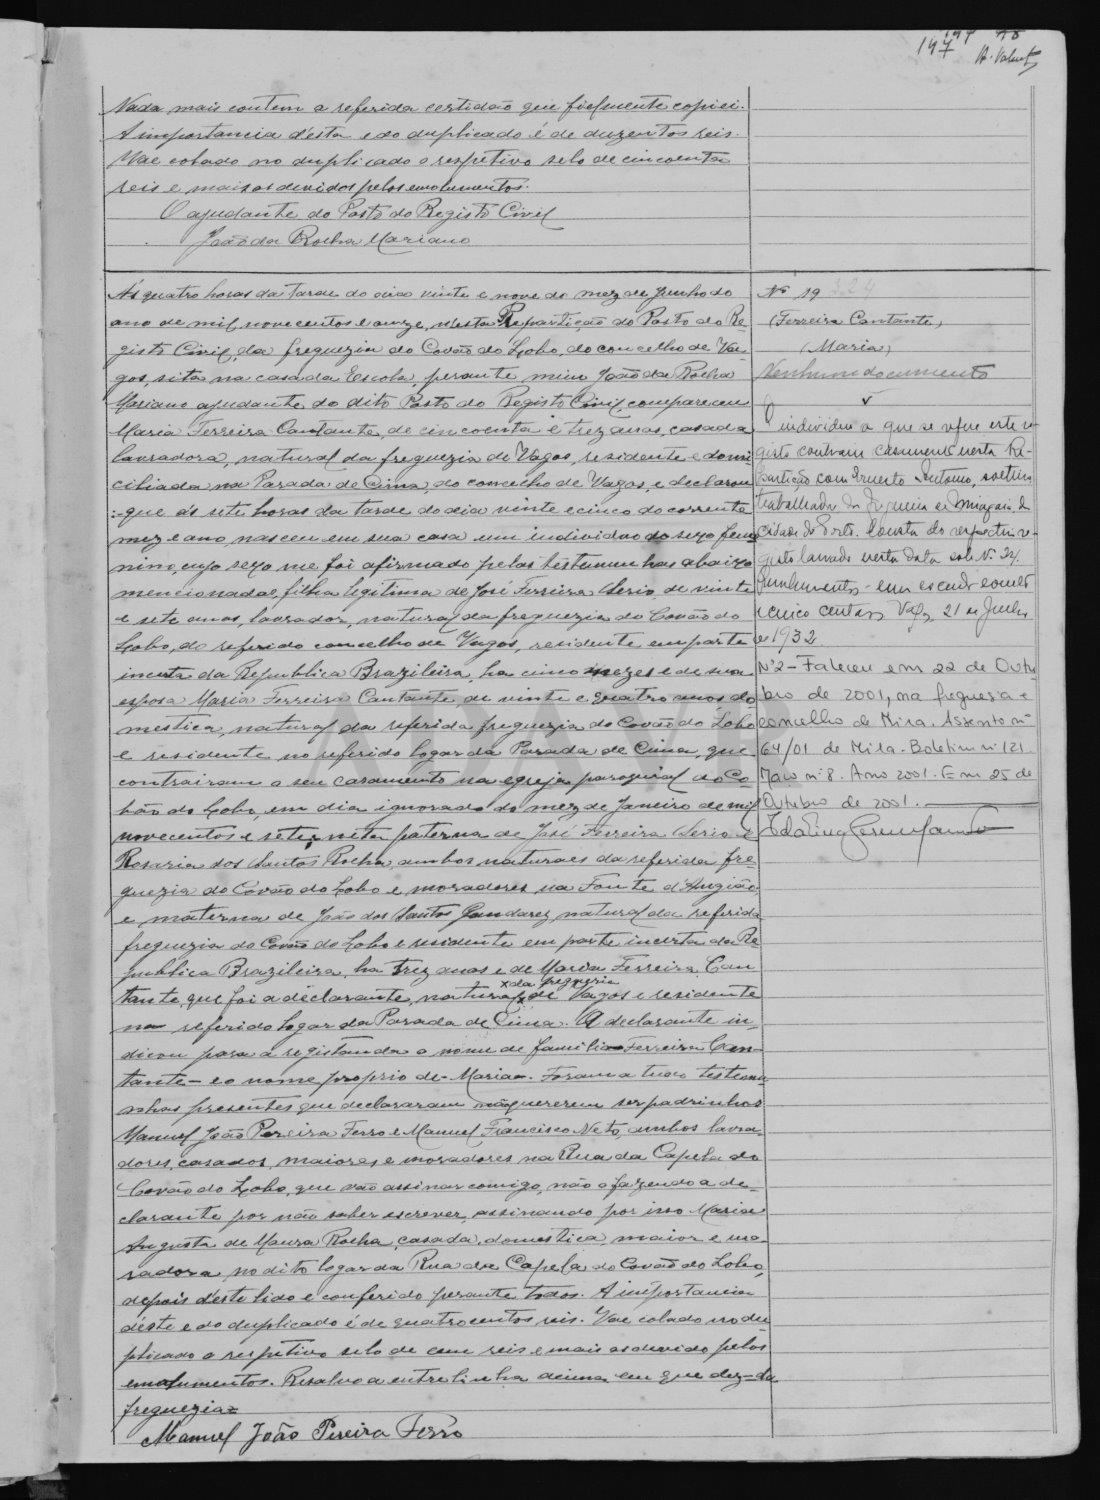 147
A. Valente
Nada mais contem a referida certidão que fielmente copiei.
A importancia d'esta e do duplicado é de duzentos reis.
Vae colado no duplicado o respetivo selo de cincoenta
reis e mais os devidos pelos emolumentos.
O ajudante do Posto do Registo Civil
João da Rocha Mariano
Ás quatro horas da tarde do dia vinte e nove do mez de Junho do
ano de mil novecentos e onze, n'esta Repartição do Posto do Re-
gisto Civil, da freguezia do Covão do Lobo, do concelho de Va-
gos, sita na casa da Escola, perante mim João da Rocha
Mariano ajudante do dito Posto do Registo Civil, compareceu
Maria Ferreira Cantante, de cincoenta e trez anos, casada
lavradora, natural da freguezia de Vagos, residente e domi-
ciliada na Parada de Cima, do concelho de Vagos, e declarou
:-que ás sete horas da tarde do dia vinte e cinco do corrente
mez e ano, nasceu em sua casa um individuo do sexo femi
nino, cujo sexo me foi afirmado pelas testemunhas abaixo
mencionadas, filha legitima de José Ferreira Serio, de vinte
e sete anos, lavrador, natural da freguezia do Covão do
Lobo, do referido concelho de Vagos, residente em parte
incerta da Republica Brazileira, ha cinco mezes e de sua
esposa Maria Ferreira Cantante, de vinte e quatro anos do-
mestica, natural da referida freguezia do Covão do Lobo
e residente no referido logar da Parada de Cima, que
contrairam o seu casamento na egreja paroquial do Co-
vão do Lobo, em dia ignorado do mez de Janeiro de mil
novecentos e sete, neta paterna de José Ferreira Serio e
Rosaria dos Santos Rocha, ambos naturaes da referida fre-
guezia do Covão do Lobo e moradores na Fonte d'Angião,
e materna de João dos Santos Gandarez, natural da referida
freguezia do Covão do Lobo e residente em parte incerta da Re
publica Brazileira, ha trez anos e de Maria Ferreira Can
x da freguezia
tante, que foi a declarante, natural x de Vagos e residente
no referido logar da Parada de Cima. A declarante in-
dicou para a registanda o nome de familia - Ferreira Can-
tante - e o nome proprio de - Maria -. Foram a tudo testemu
nhas presentes que declararam não quererem ser padrinhos
Manuel João Pereira Ferro e Manuel Francisco Neto, ambos lavra-
dores, casados, maiores e moradores na Rua da Capela do
Covão do Lobo, que vão assinar comigo, não o fazendo a de-
clarante por não saber escrever, assinando por isso Maria
Augusta de Moura Rocha, casada, domestica, maior e mo-
radora no dito logar da Rua da Capela do Covão do Lobo,
depois d'este lido e conferido perante todos. A importancia
d'este e do duplicado é de quatrocentos reis. Vae colado no du
plicado o respetivo selo de cem reis e mais os devido pelos
emolumentos. Resalvo a entrelinha acima em que diz = da
freguezia =
Manuel João Pereira Ferro
Nº 19 224
(Ferreira Cantante)
(Maria)
Nenhum documento
O individuo a que se refere este re-
gisto contraiu casamento nesta Re-
partição com Ernesto Antonio, solteiro
trabalhador da freguesia de Miragaia da
cidade do Porto. Consta do respectivo re-
gisto lavrado nesta data sob nº 24.
Emolumentos - um escudo e
cinco centavos. Vagos, 21 de Junho
de 1932
Nº 2 - Faleceu em 22 de Outu
bro de 2001, na freguesia e
concelho de Mira. Assento nº
64/01 de Mira. Boletim nº 121
Maço nº 8. Ano 2001. Em 25 de
Outubro de 2001.